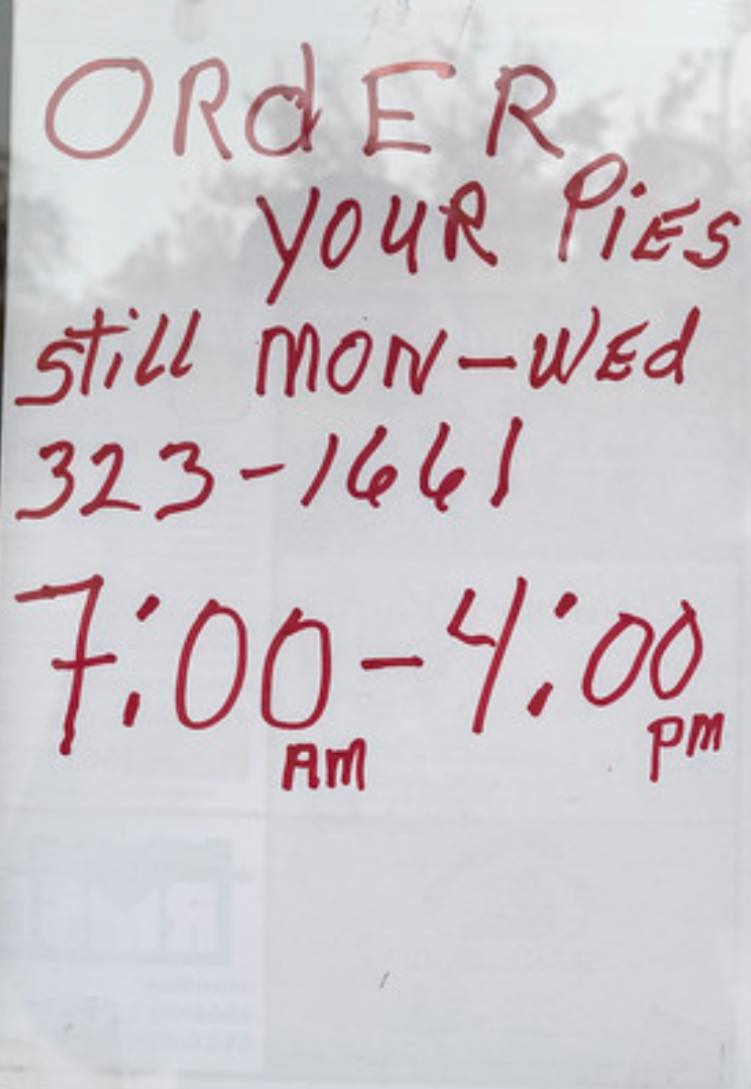 ORdER
YOUR PiES
still MON-WEd
323-1661
7:00-4:00
AM PM